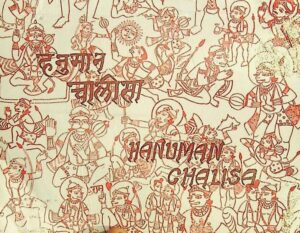 हनुमान
चालीसा
HANUMAN
CHALISA